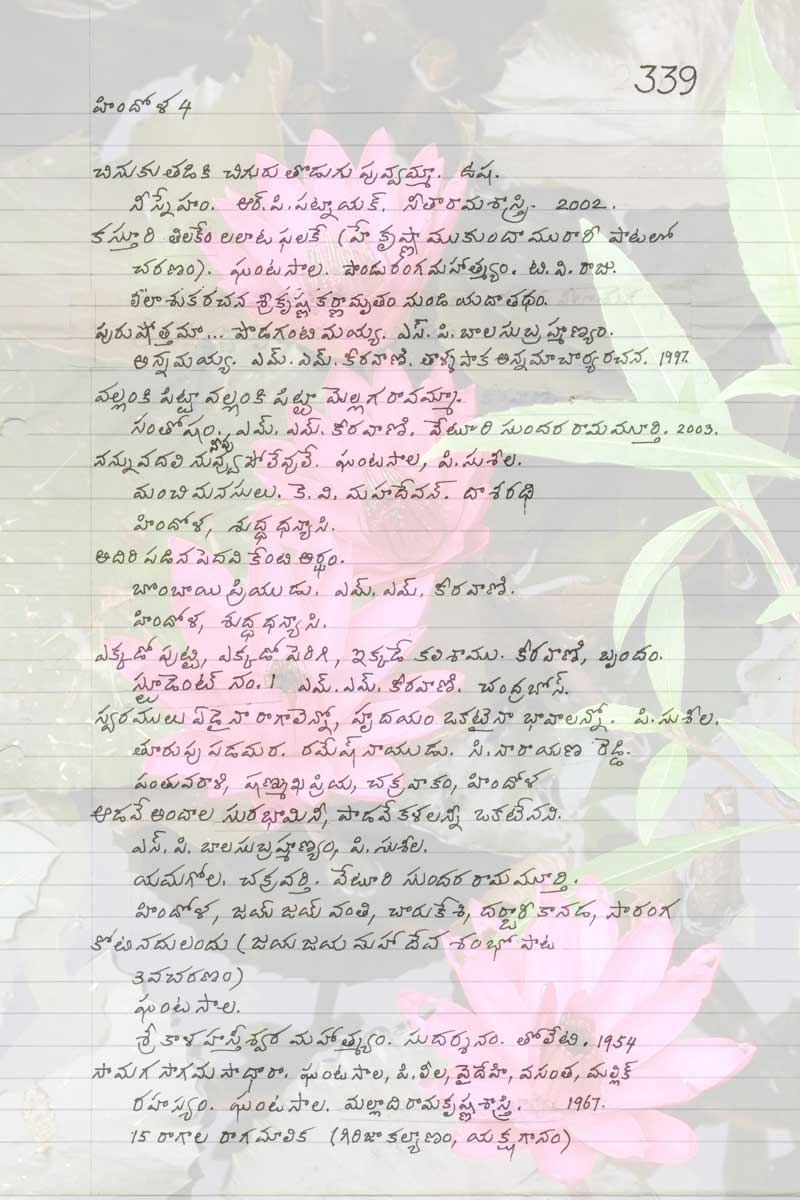 339
హిందోళ 4
చినుకు తడికి చిగురు తొడుగు పువ్వమ్మా. ఉష.
నీ స్నేహం. ఆర్.పి.పట్నాయక్. సీతారామశాస్త్రి. 2002.
కస్తూరి తిలకం లలాట ఫలకే (హే కృష్ణా ముకుందా మురారీ పాటలో
చరణం). ఘంటసాల. పాండురంగమహాత్మ్యం. టి.వి.రాజు.
లీలాశుకరచన శ్రీకృష్ణ కర్ణామృతం నుండి యదాతథం.
పురుషోత్తమా... పొడగంటిమయ్య. ఎస్.పి.బాలసుబ్రహ్మణ్యం.
అన్నమయ్య. ఎమ్.ఎమ్.కీరవాణి. తాళ్ళపాక అన్నమాచార్య రచన. 1997.
వల్లంకి పిట్టా వల్లంకి పిట్టా మెల్లగ రావమ్మా.
సంతోషం. ఎమ్.ఎమ్.కీరవాణి. వేటూరి సుందరరామమూర్తి. 2003.
నన్ను వదలి నువ్వు పోలేవులే. ఘంటసాల, పి.సుశీల.
నీవు
మంచి మనసులు. కె.వి.మహదేవన్. దాశరథి
హిందోళ, శుద్ధ ధన్యాసి.
అదిరి పడిన పెదవి కేంటి అర్థం.
బొంబాయి ప్రియుడు. ఎమ్.ఎమ్.కీరవాణి.
హిందోళ, శుద్ధ ధన్యాసి.
ఎక్కడో పుట్టి, ఎక్కడో పెరిగి, ఇక్కడే కలిశాము. కీరవాణి, బృందం.
స్టూడెంట్ నం.1 ఎమ్.ఎమ్.కీరవాణి. చంద్రబోస్.
స్వరములు ఏడైనా రాగాలెన్నో, హృదయం ఒకటైనా భావాలన్నో. పి.సుశీల.
తూరుపు పడమర. రమేష్ నాయుడు. సి.నారాయణ రెడ్డి.
పంతువరాళి, షణ్ముఖప్రియ, చక్రవాకం, హిందోళ
ఆడవే అందాల సురభామినీ, పాడవే కళలన్నీ ఒకటేనని.
ఎస్.పి.బాలసుబ్రహ్మణ్యం, పి.సుశీల.
యమగోల. చక్రవర్తి. వేటూరి సుందరరామమూర్తి.
హిందోళ, జయ్ జయ్ వంతి, చారుకేశి, దర్బారీ కానడ, సారంగ
కోటి నదులందు (జయ జయ మహాదేవ శంభో పాట
3వ చరణం)
ఘంటసాల.
శ్రీ కాళహస్తీశ్వర మహాత్మ్యం. సుదర్శనం. తోలేటి. 1954
సామగ సాగమ సాధారా. ఘంటసాల, పి.లీల, వైదేహి, వసంత, మల్లిక్
రహస్యం. ఘంటసాల. మల్లాది రామకృష్ణశాస్త్రి. 1967.
15 రాగాల రాగమాలిక (గిరిజా కల్యాణం, యక్షగానం)